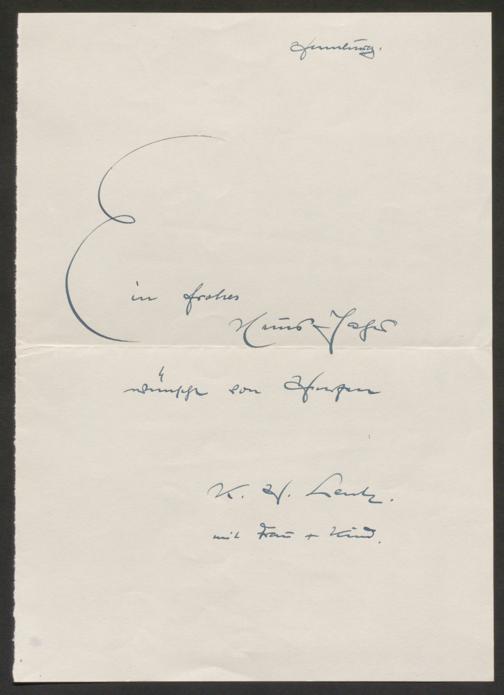 Hamburg.
Ein frohes
Neues-Jahr
wünscht von Herzen
K. H. Lentz.
mit Frau + Kind.